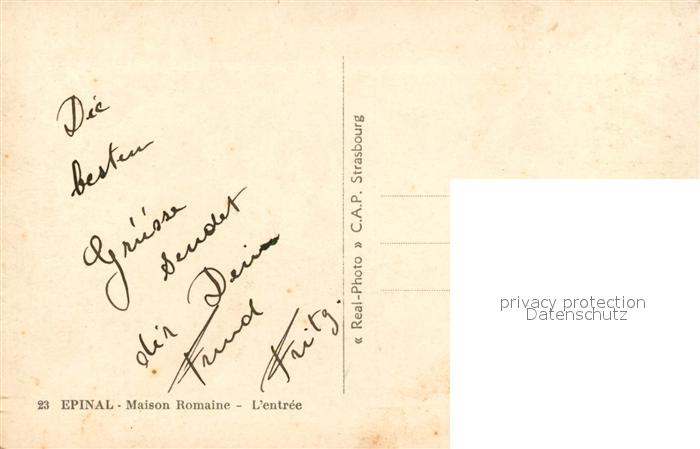 Die
besten
Grüsse
sendet
dir Dein
Freund
Fritz.
23 EPINAL - Maison Romaine - L'entrée
« Real-Photo » C.A.P. Strasbourg
privacy protection
Datenschutz